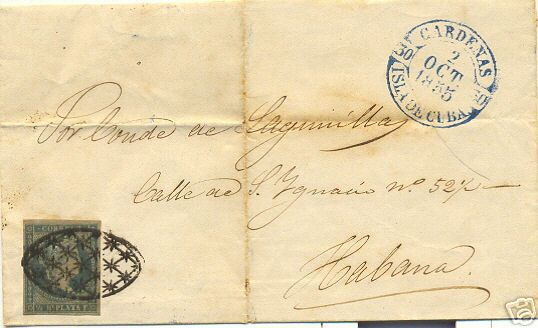 CARDENAS
2
OCT
1855
ISLA DE CUBA
Conde de Lagunilla
Calle de S. Ygnacio nº. 52
Habana.
CORREOS